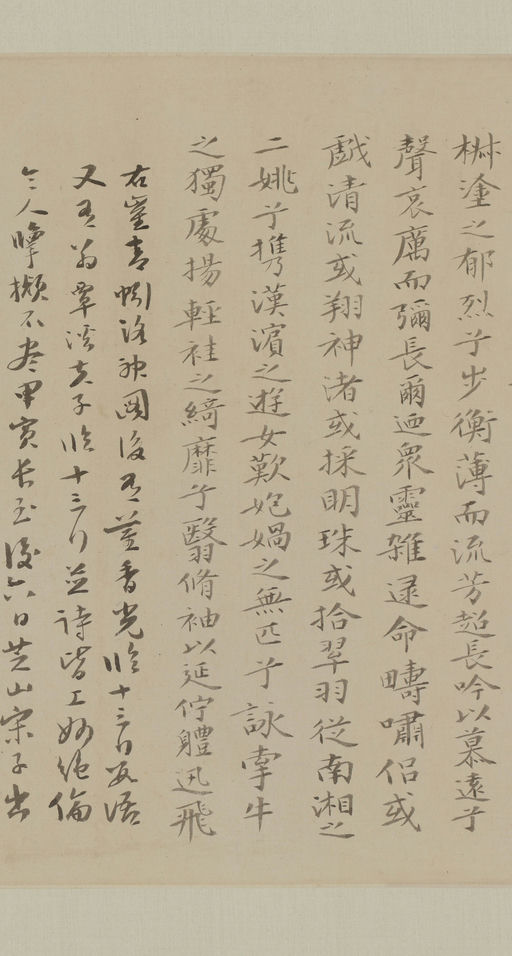 椒塗之郁烈兮步衡薄而流芳超長吟以慕遠兮
聲哀厲而彌長爾迺衆靈雜遝命疇嘯侶或
戲清流或翔神渚或採明珠或拾翠羽從南湘之
二姚兮携漢濱之遊女歎匏媧之無匹兮詠牽牛
之獨處揚輕袿之綺靡兮翳脩袖以延佇體迅飛
右崔青蚓洛神圖後有董香光臨十三行
又有翁覃溪夫子臨十三行並詩皆工妙絕倫
令人臨擬不盡甲寅長至後六日芝山宋